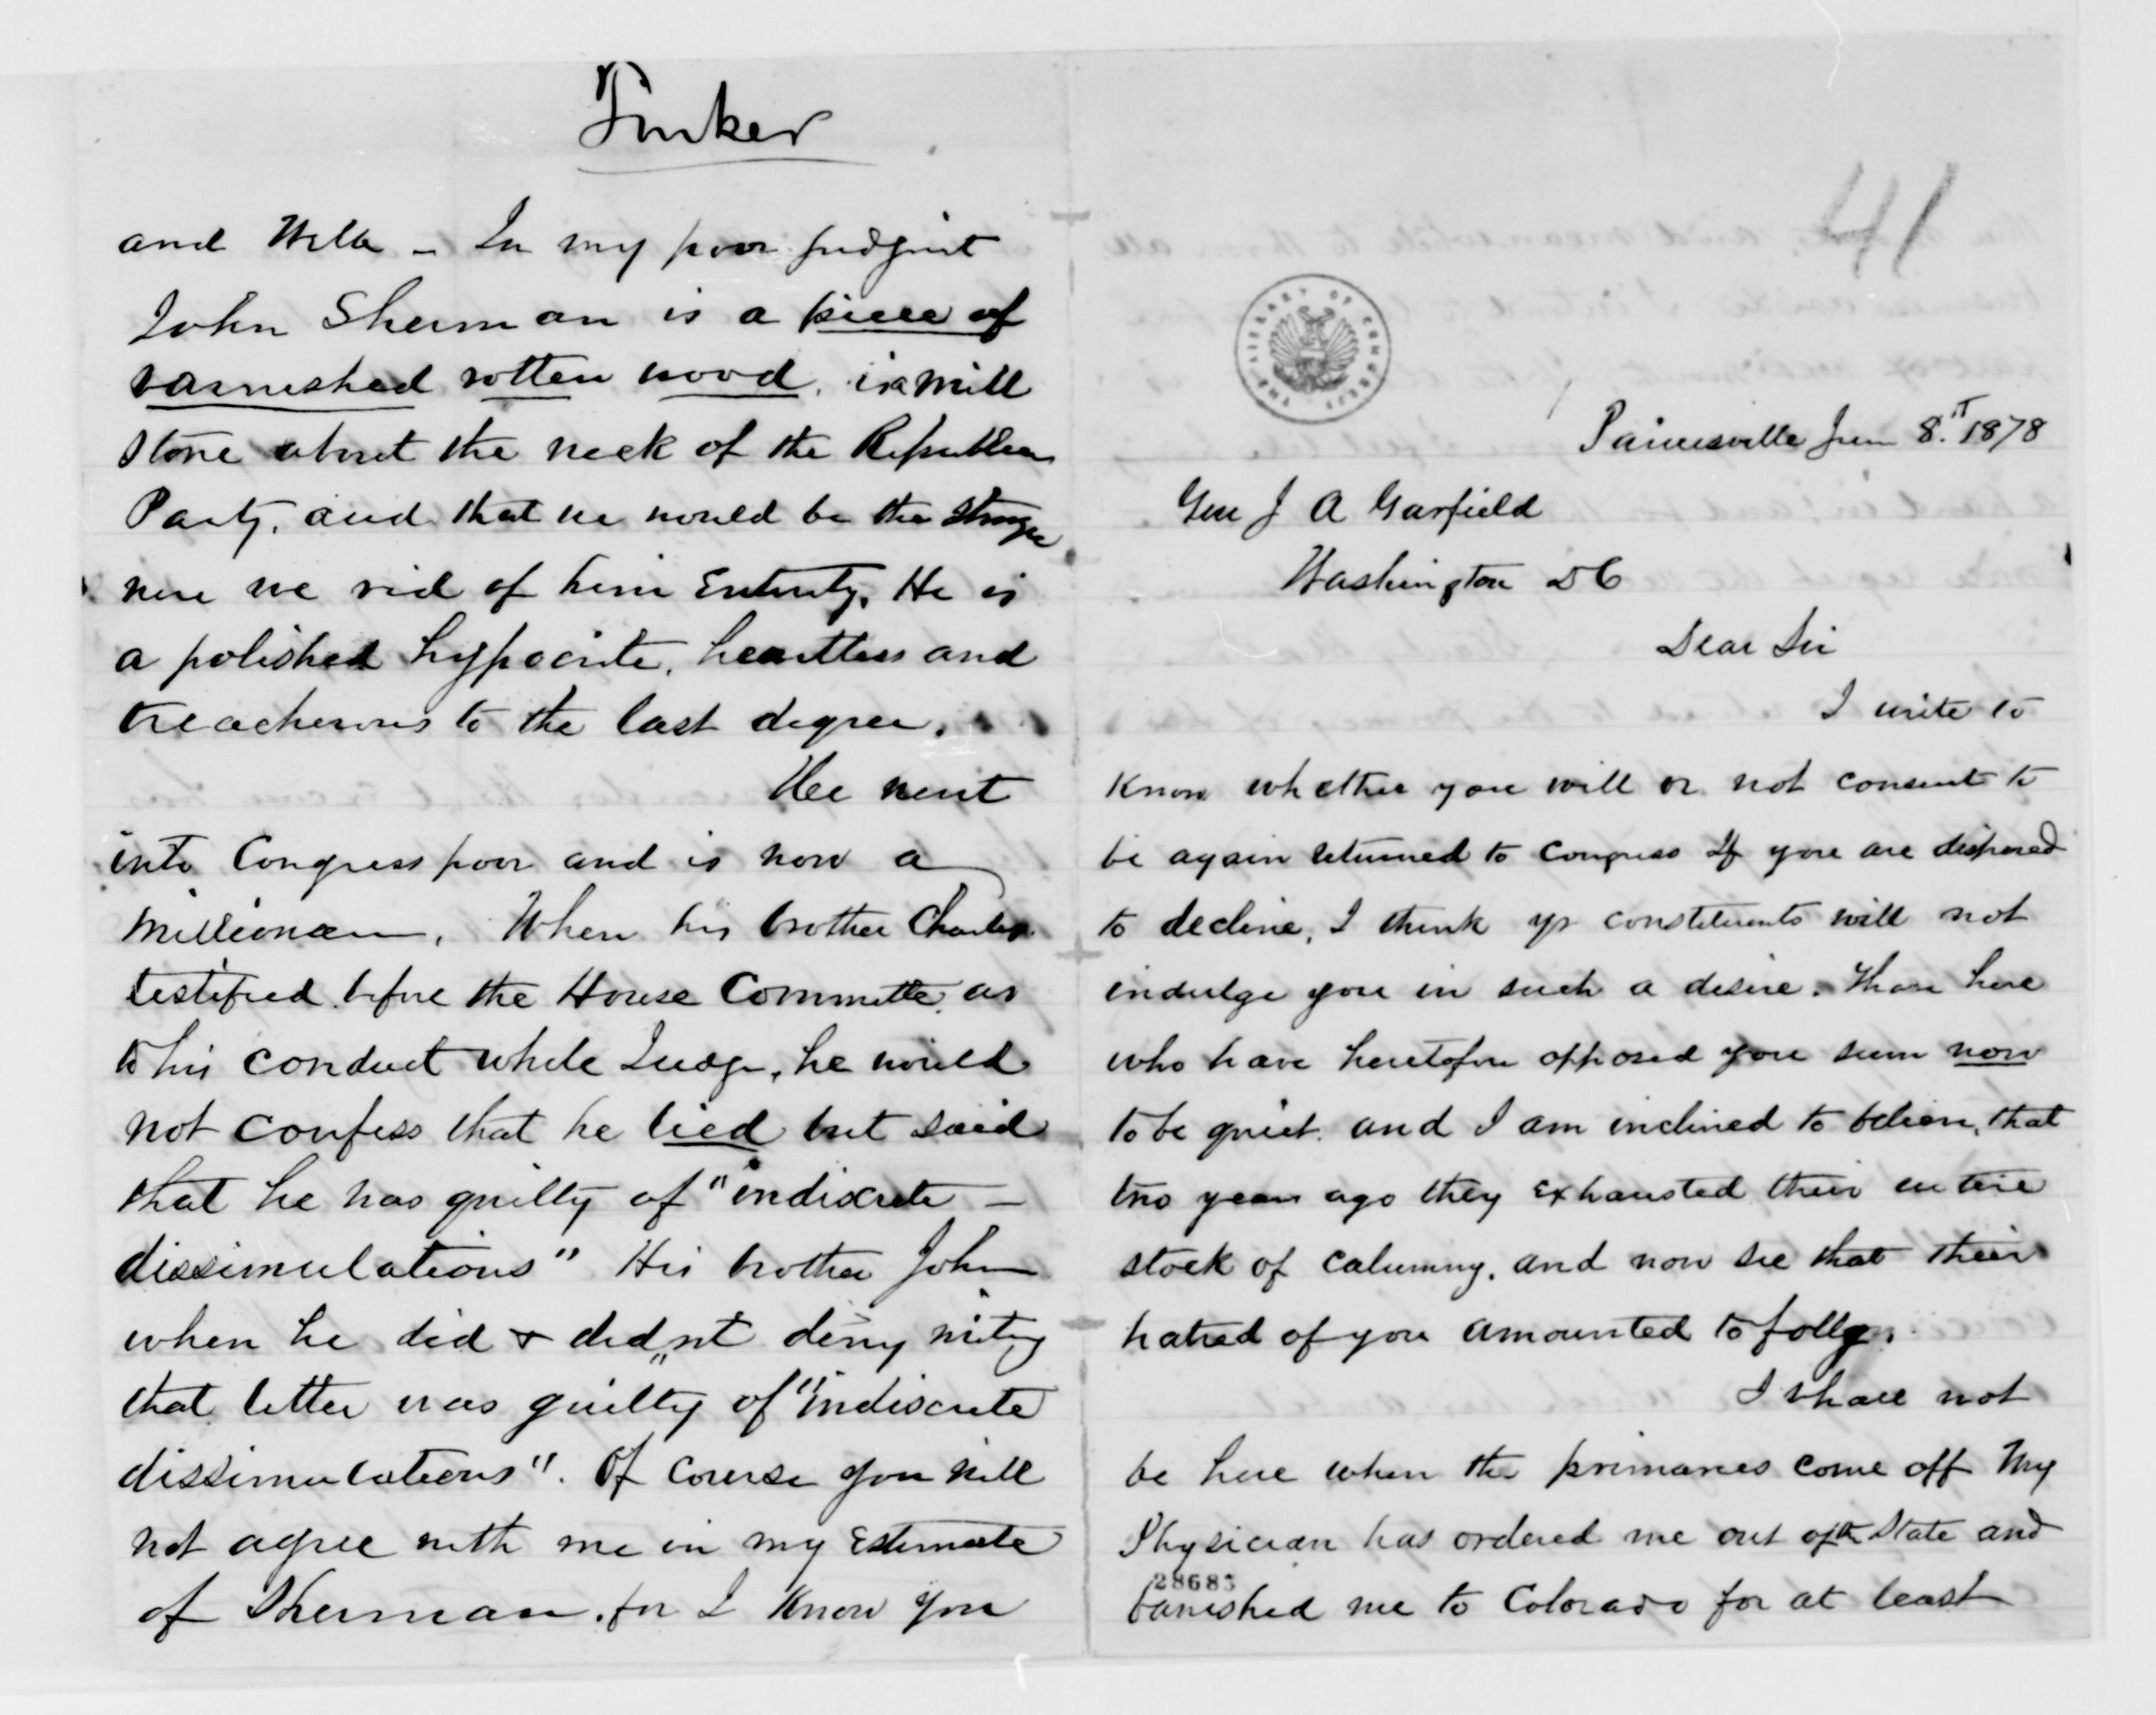 Tinker
and Wells – In my poor judgmt
John Sherman is a piece of
varnished rotten wood, is a mill
stone about the neck of the Republican
Party, and that we would be the stronger
were we rid of him Entirely. He is
a polished hypocrite, heartless and
treacherous to the last degree.
Hee went
into Congress poor and is now a
millionair. When his brother Charles
testified before the House Committe, as
to his conduct while Judge, he would
not confess that he lied but said
that he was guilty of "indiscrete –
dissimulations" His brother John
when he did & did,,nt deny writing
that letter was guilty of "indiscrete
dissimulations". Of course you will
not agree with me in my Estimate
of Sherman, for I know you
41
THE LIBRARY OF CONGRESS
Painesville Jun 8.th 1878
Gen J A Garfield
Washington DC
Dear Sir
I write to
Know whether you will or not consent to
be again returned to Congress If you are disposed
to decline, I think yr constituents will not
indulge you in such a desire. Those here
who have heretofore opposed you seem now
to be quiet. and I am inclined to believe, that
two years ago they Exhausted their entire
stock of calumny, and now see that their
hatred of you amounted to folly.
I shall not
be here when the primaries come off My
Physician has ordered me out of the State and
28683
banished me to Colorado for at least